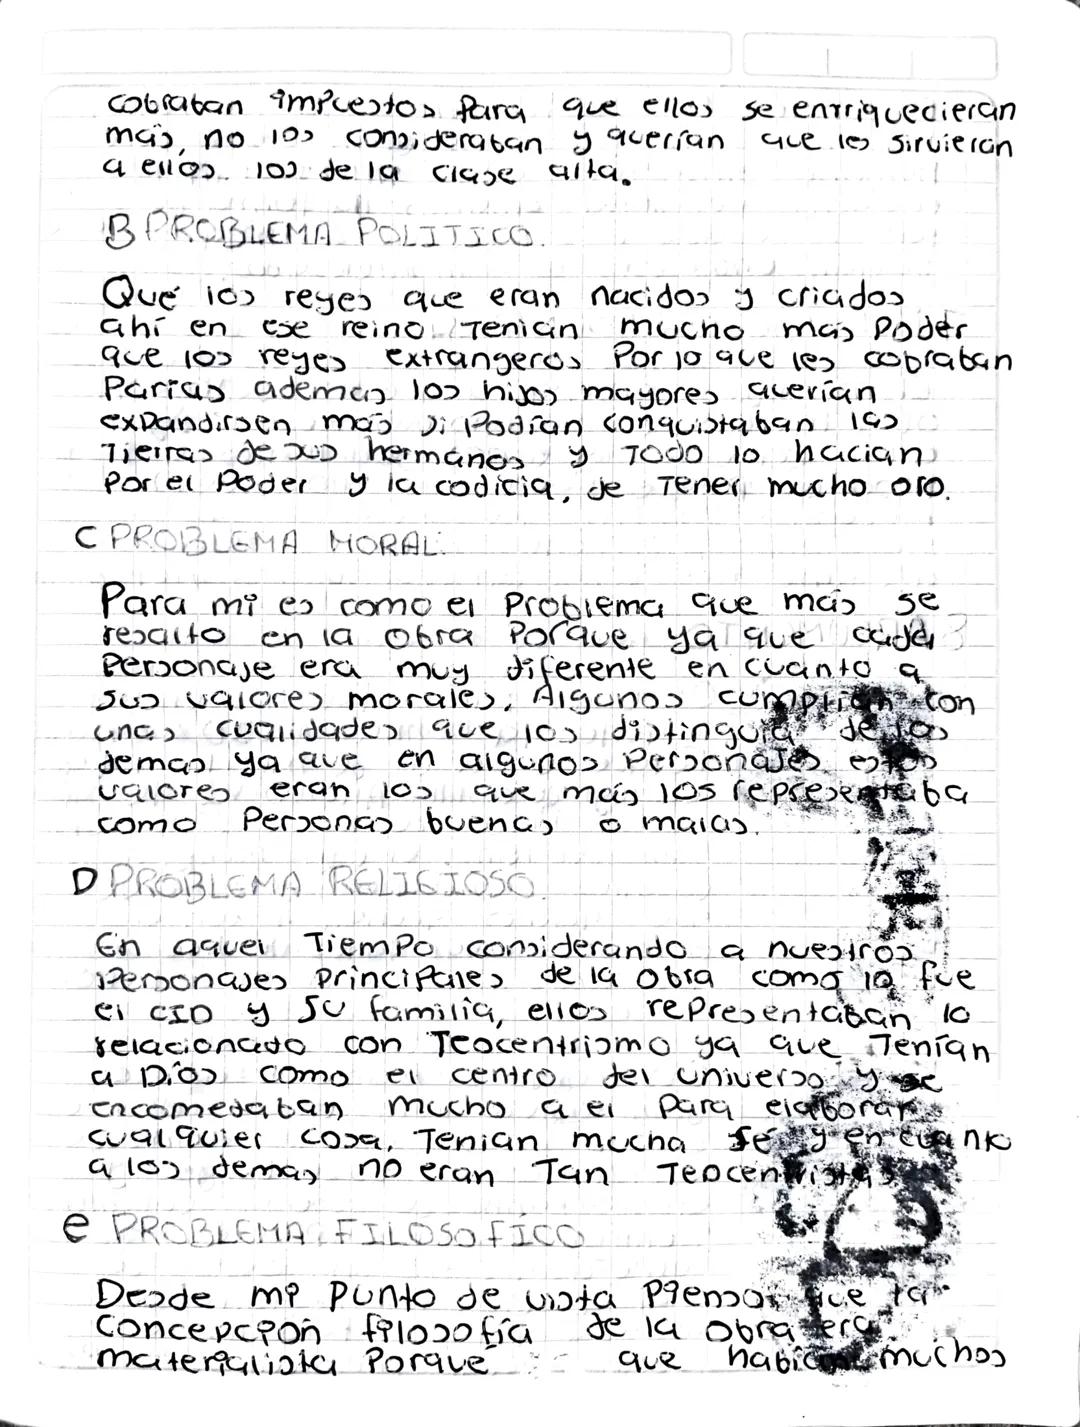 cobraban impuestos para que ellos se enrriquecieran
más, no los consideraban y querían que les sirvieran
a ellos los de la clase alta.
B PROBLEMA POLITICO.
Qué los reyes que eran nacidos y criados
ahí en ese reino Tenian mucho mas Poder
que los reyes extrangeros Por lo que les cobraban
Parias ademas los hijos mayores querían
expandirsen más si Podían conquistaban las
Tierras de sus hermanos y Todo lo hacian
Por el Poder y la codicia, de Tener mucho oro.
C PROBLEMA MORAL.
Para mi es como el Problema que más se
resalto en la obra Porque ya que cada
Personaje era muy diferente en cuanto a
sus valores morales, Algunos cumplian con
unas cualidades que los distinguia de las
demas ya que en algunos Personajes estos
valores eran los que más los representaba
como Personas buenas o malas.
D PROBLEMA RELIGIOSO
En aquel Tiempo considerando a nuestros
Personajes Principales de la obra como lo fue
el CID y su familia, ellos representaban lo
relacionado con Teocentrismo ya que Tenían
a Dios como el centro del universo y se
encomedaban mucho a el para elaborar
cualquier cosa, Tenian mucha fé y en cuanto
a los demas no eran Tan Teocentristas
e PROBLEMA FILOSOFICO
Desde mi punto de vista Pienso que la
concepción filosofía de la obra era
materialista Porque que habian muchos